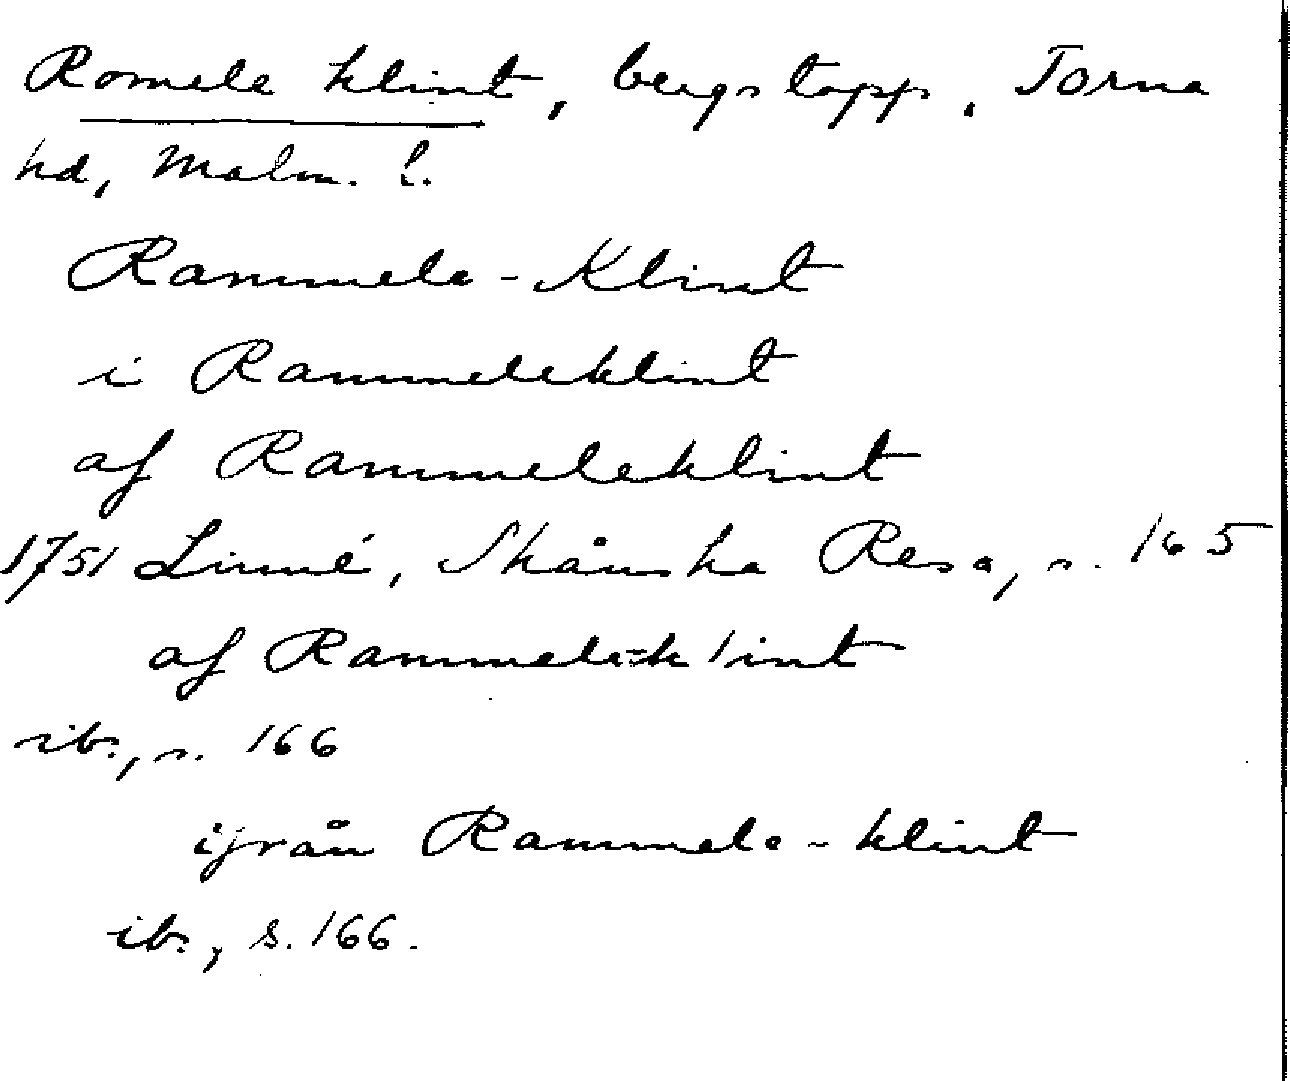 Romele klint, bergstopp, Torna
hd, Malm. l.
Rammele-Klint
i Rammeleklint
af Rammeleklint
1751 Linné, Skånska Resa, s. 165
af Rammele=klint
ib., s. 166
ifrån Rammele-klint
ib., s. 166.